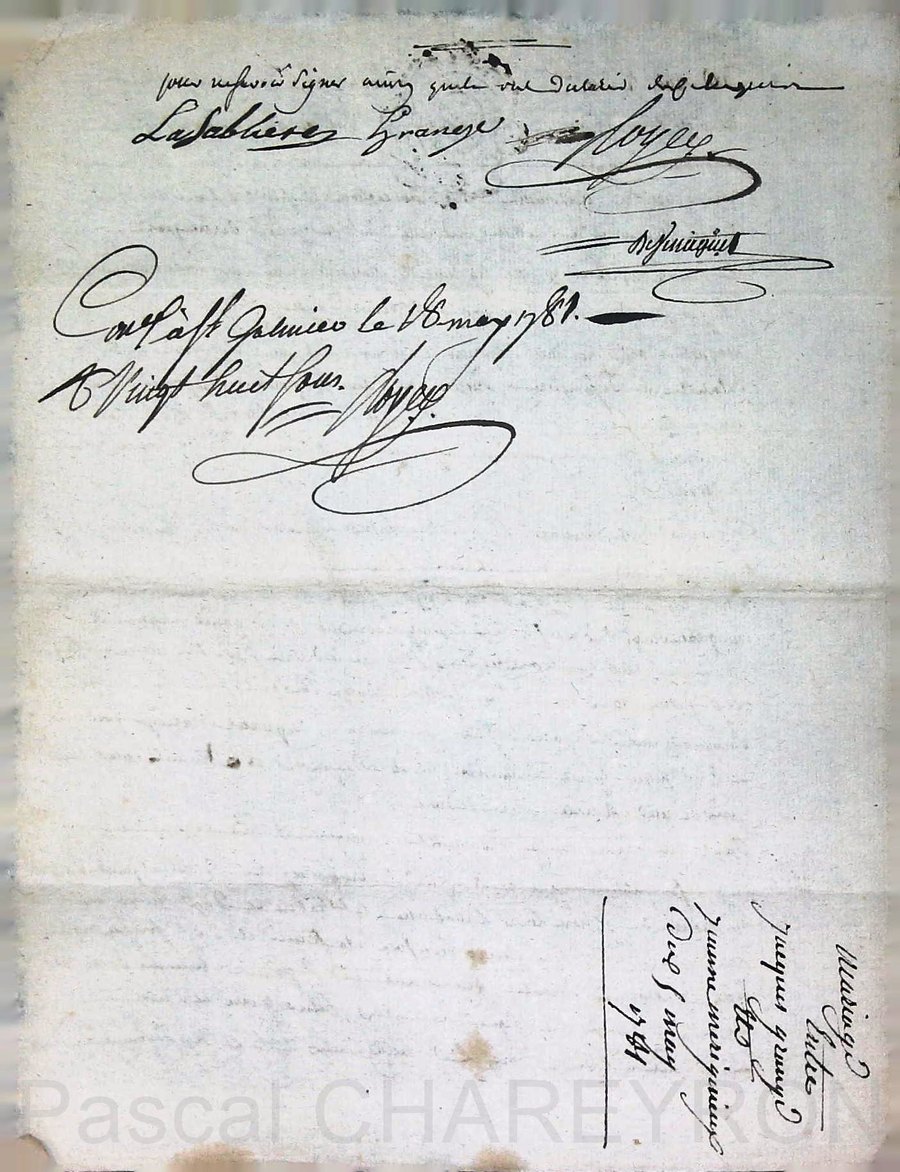 pour ne savoir signer ainsi quils ont declaré de ce enquis
Lasabliere Grange Royet
Desjmiquet
Conlé à St Galmier le 18 may 1781.
R vingt huit sous. Royet
Mariage
Entre
Jacques grange
Et
jeanne merigneux
Du 5 may
1781
Pascal CHAREYRON